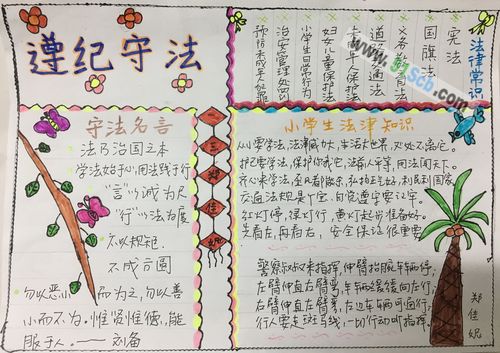 遵纪守法
法律常识
宪法
国旗法
义务教育法
道路交通法
未成年人保护法
妇女儿童保护法
小学生日常行为
治安管理处罚
预防未成年人犯罪
守法名言
法乃治国之本
学法始于心,用法践于行
"言"以诚为尺
"行"以法为展
不以规矩,
不成方圆
勿以恶小而为之,勿以善
小而不为。惟贤惟德,能
服于人。——刘备
三
郑
佳
妮
小学生法律知识
人人要学法,法津威力大,生活大世界,处处不离它。
护它要学法,保护你我它,法前人平等,用法闯天下。
齐心来学法,
交通法规是个宝,自觉遵守要记牢。
红灯停,绿灯行,黄灯起步准备好。
先看左,再看右,安全保证很重要
警察叔叔来指挥,伸臂抬腕车辆停,
左臂伸直右臂弯,车辆缓缓向左行,
右臂伸直左臂弯,左边车辆可通行,
行人要走斑马线,一切行动听指挥。
郑佳妮